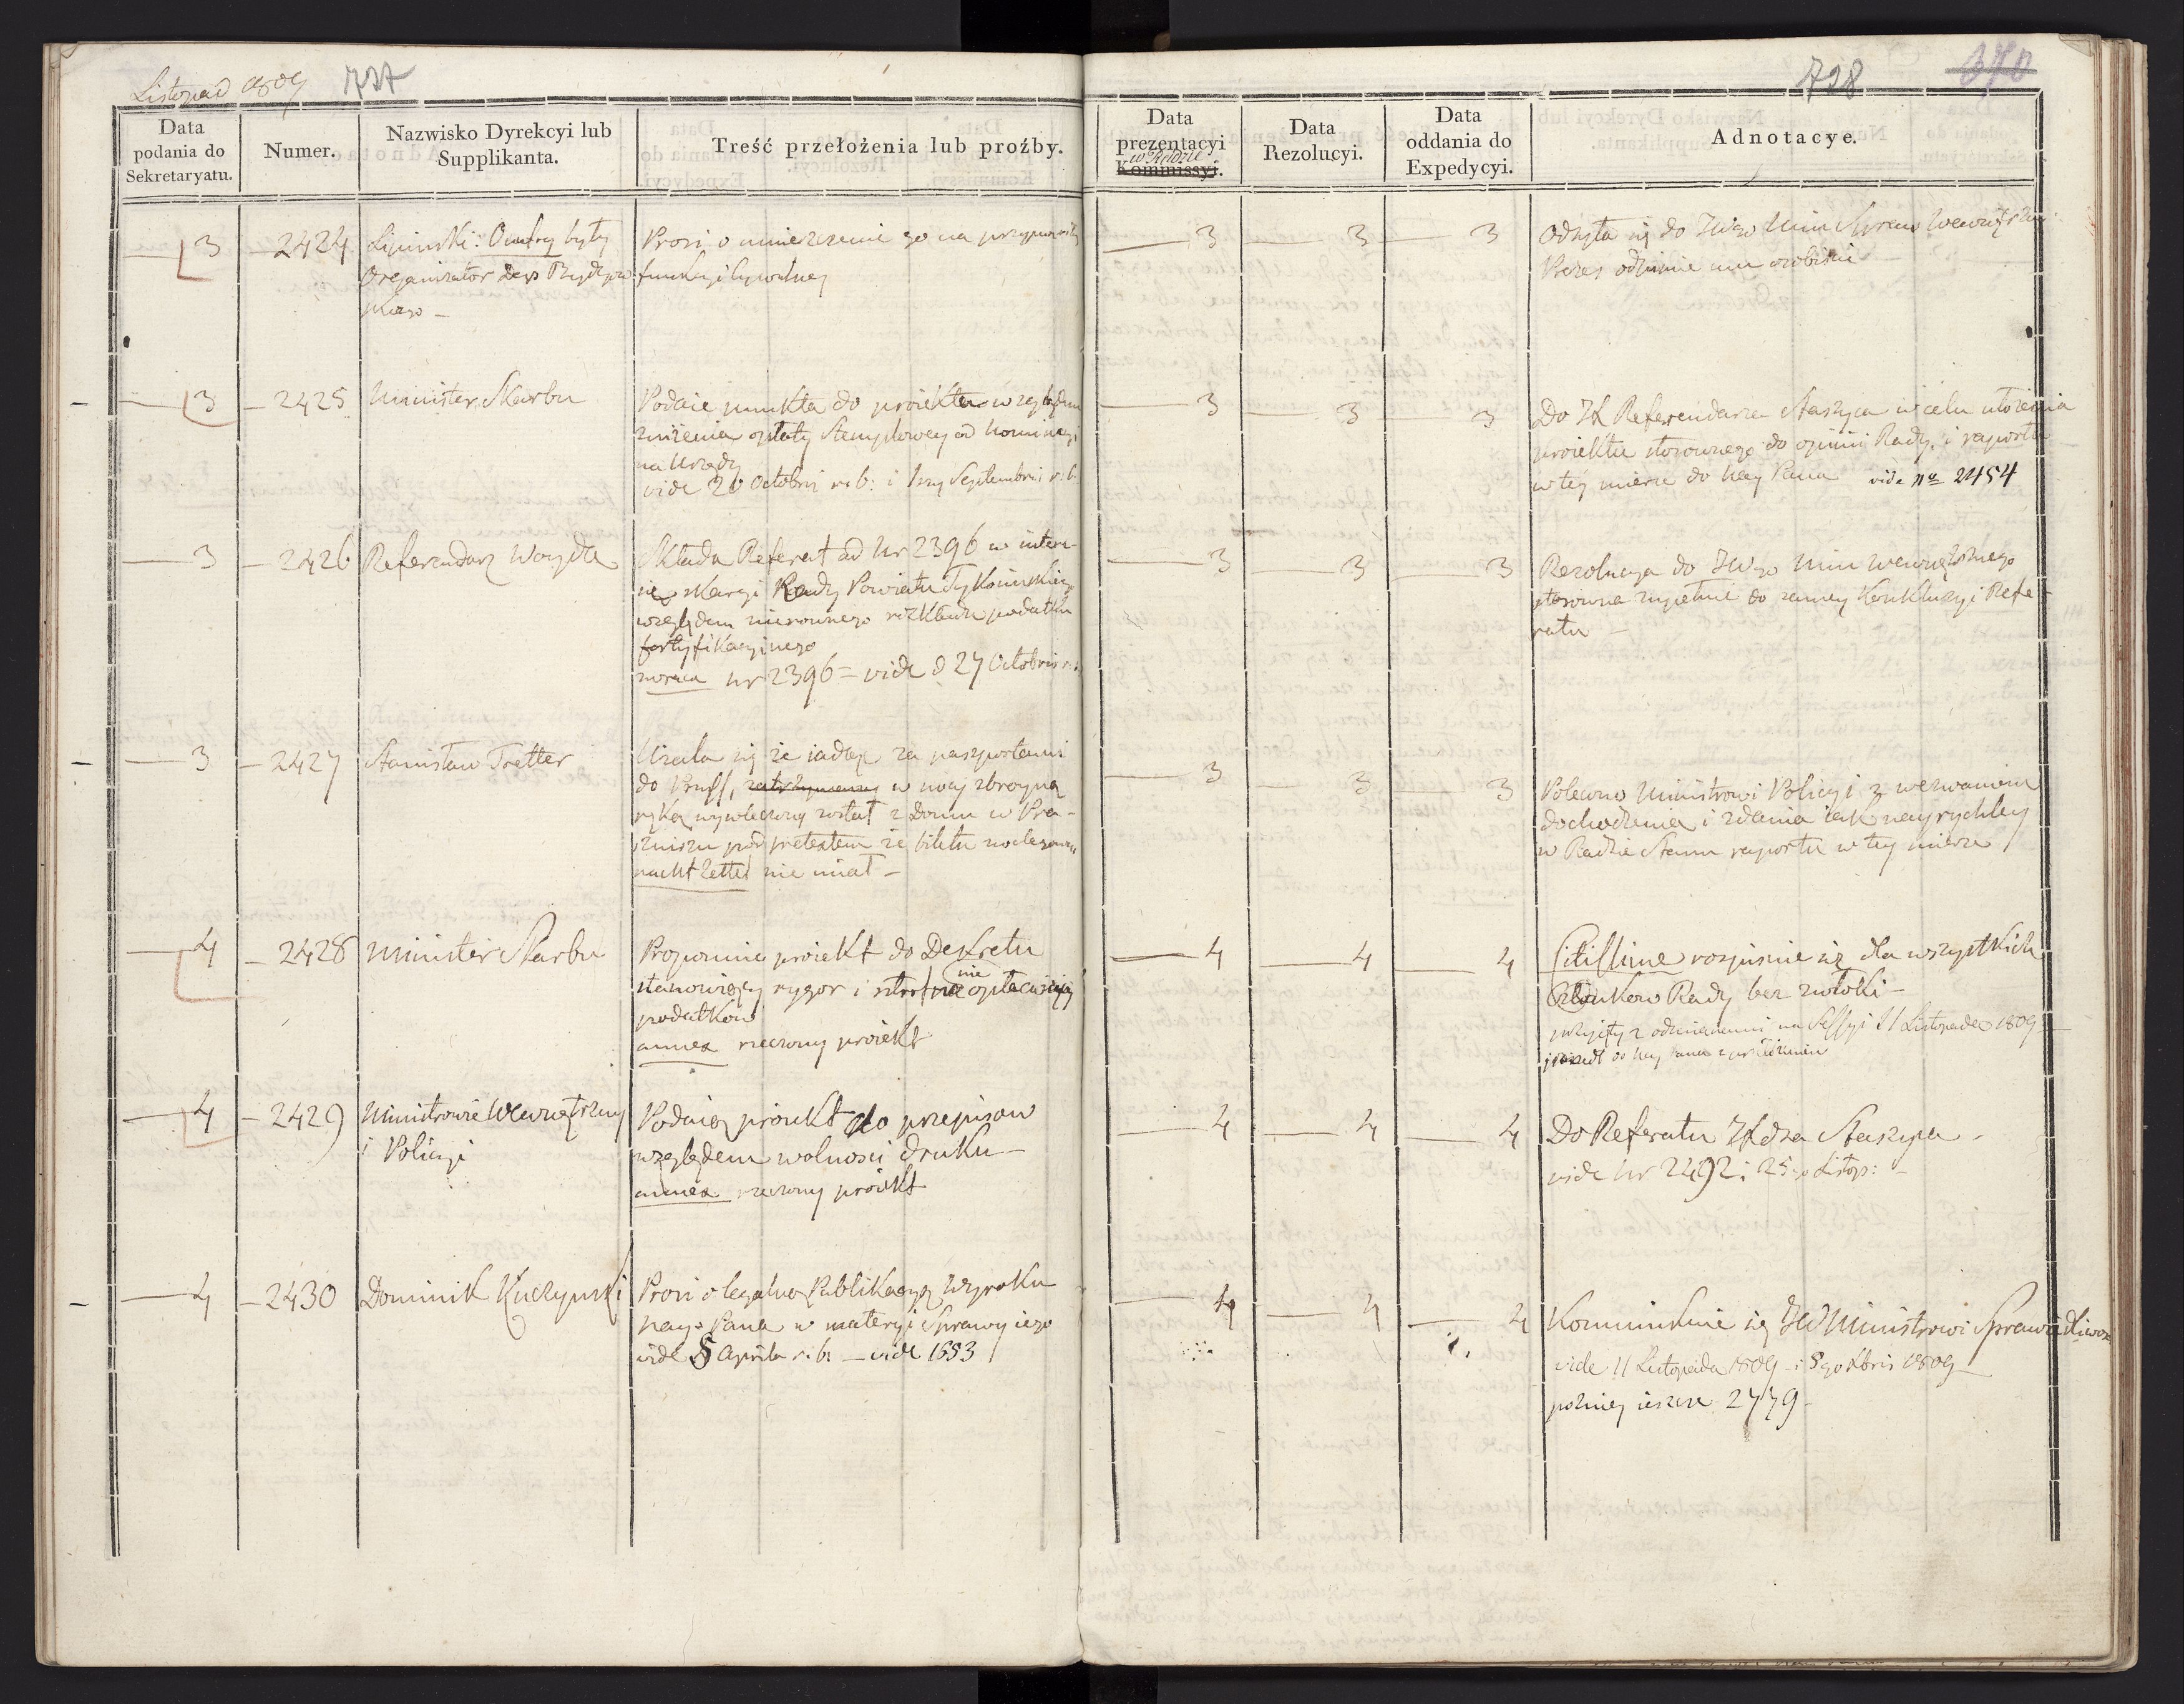 Listopad 1809 727
Data
podania do
Sekretaryatu.
Numer.
Nazwisko Dyrekcyi lub
Supplikanta.
Treść przełożenia lub proźby.
3 2424 Lipinski: Onufry były
Organizator Dep Bydgow
skiego –
Prosi o umieszczenie go na przyzwoitey
funkcyi Cywilney
3 – 2425 Minister Skarbu
Podaie punkta do proiektu względem
zniżenia opłaty Stemplowey od nominacyi
na Urzędy
vide 20 Octobris r. b: i 1szy Septembris r. b.
3 – 2426 Referendarz Woyda
Składa Referat ad Nr 2396 w intere-
sie skargi Rady Powiatu Tykocinskiego
względem nierownego rozkładu podatku
fortyfikacyinego
zwraca Nr 2396 = vide d 27 Octobris r. b.
3 – 2427 Stanisław Tretter
Uzala się że iadąc za paszportami
do Pruss, zatrzymany w nocy zbroyną
ręką wywleczony został z Domu w Pra-
sznizu pod pretextem że biletu noclegowego
nacht Zettel nie miał –
4 – 2428 Minister Skarbu
Proponuie proiekt do Dekretu
stanowiący rygor i nie opłacaiących
podatkow
annex rzeczony proiekt
4 – 2429 Ministrowie Wewnętrzny
i Policyi
Podaią proiekt do przepisow
względem wolnosci druku –
annex rzeczony proiekt
4 – 2430 Dominik Kuczynski
Prosi o legalną Publikacyą Wyroku
nayo Pana w materyi Sprawy iego
vide 8 Aprila r. b. – vide 1653
728 370
Data
prezentacyi
w Radzie
Kommissyi.
Data
Rezolucyi.
Data
oddania do
Expedycyi.
Adnotacye.
3 3 3 Odsyła się do JWgo Min Spraw Wewnętrzn:
Prezes odsunie mu osobiscie
3 3 3 Do JX Referendarza Staszyca w celu ułożenia
proiektu stosownego do opinii Rady, i raportu
w tey mierze do Nay Pana vide No 2454
3 3 3 Rezolucya do JWgo Min Wewnętrznego
stosowna zupełnie do samey Konkluzyi Refe-
ratu –
3 3 3 Polecono Ministrowi Policyi z wezwaniem
dochodzenia i zdania iak nayrychley
w Radzie Stanu raportu w tey mierze
4 4 4 Citissime rospisuie się dla wszystkich
Członkow Rady bez zwłoki –
przyięty z odmianami na Sessyi 11 Listopada 1809
i poszedł do Nay Pana z przełożeniem
4 4 4 Do Referatu JXdza Staszyca –
vide Nr 2492 i 25go Listop: –
4 4 4 Kommunikuie się JW Ministrowi Sprawiedliwosci
vide 11 Listopada 1809 – i 8go Xbris 1809
pozniey ieszcze 2779 –